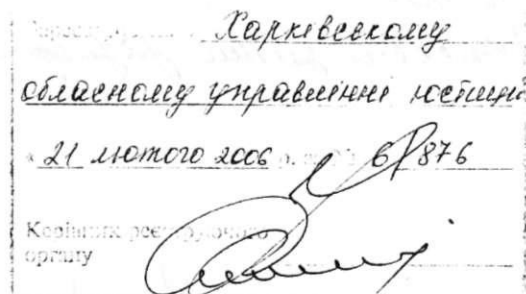 Харківському
обласному управлінні юстиції
21 лютого 2006 р. 876
Керівник реєструючого
органу